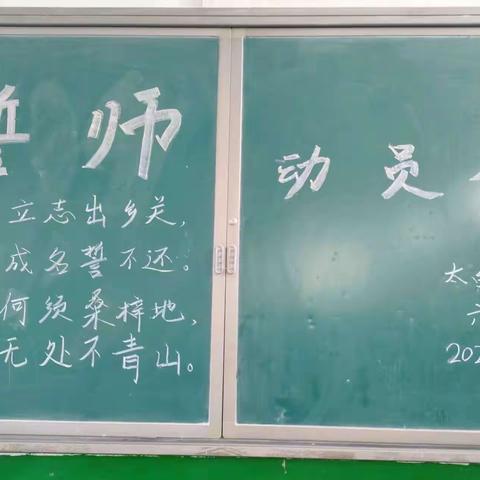 师 动员
立志出乡关,
成名誓不还。
何须桑梓地,
无处不青山。
太
202